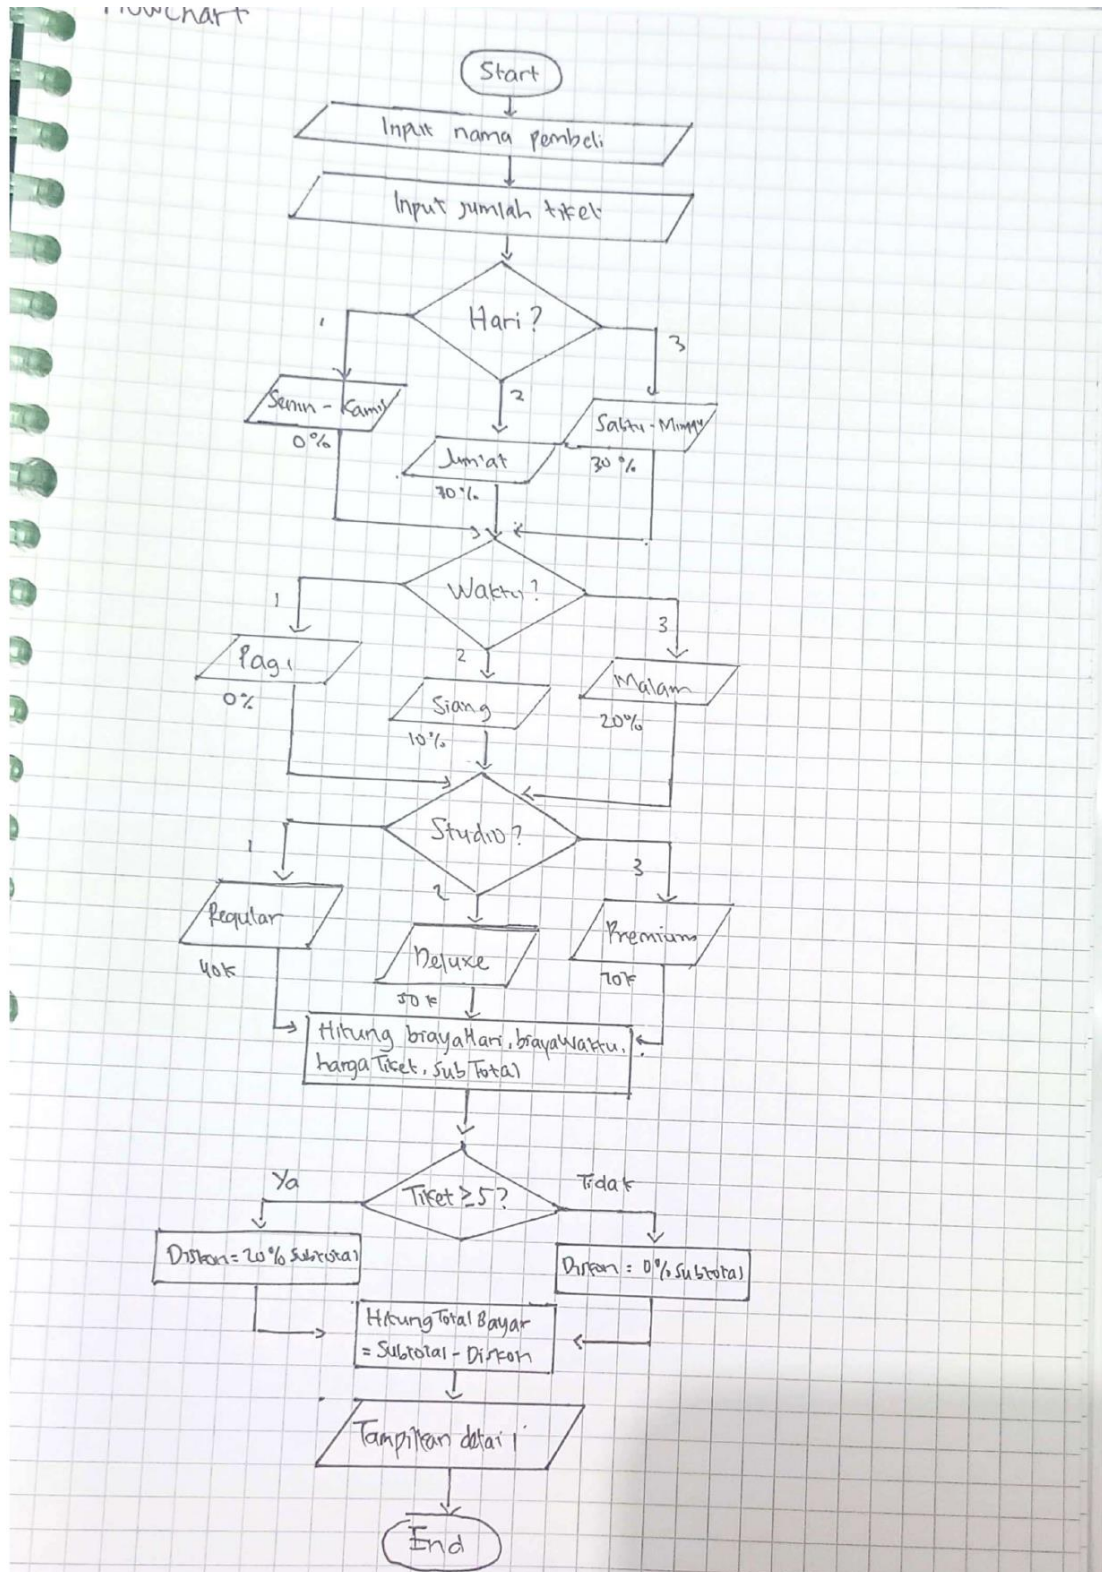 Flowchart
Start
Input nama pembeli
Input jumlah tiket
Hari?
1
2
3
Senin - Kamis
0%
Jum'at
Sabtu - Minggu
30%
Waktu?
1
2
3
Pagi
0%
Siang
10%
Malam
20%
Studio?
1
2
3
Regular
40k
Deluxe
50k
Premium
70k
Hitung biayaHari, biayaWaktu,
hargaTiket, subTotal
Tiket ≥ 5?
Ya
Tidak
Diskon = 20% subtotal
Diskon = 0% subtotal
Hitung Total Bayar
= Subtotal - Diskon
Tampilkan detail
End